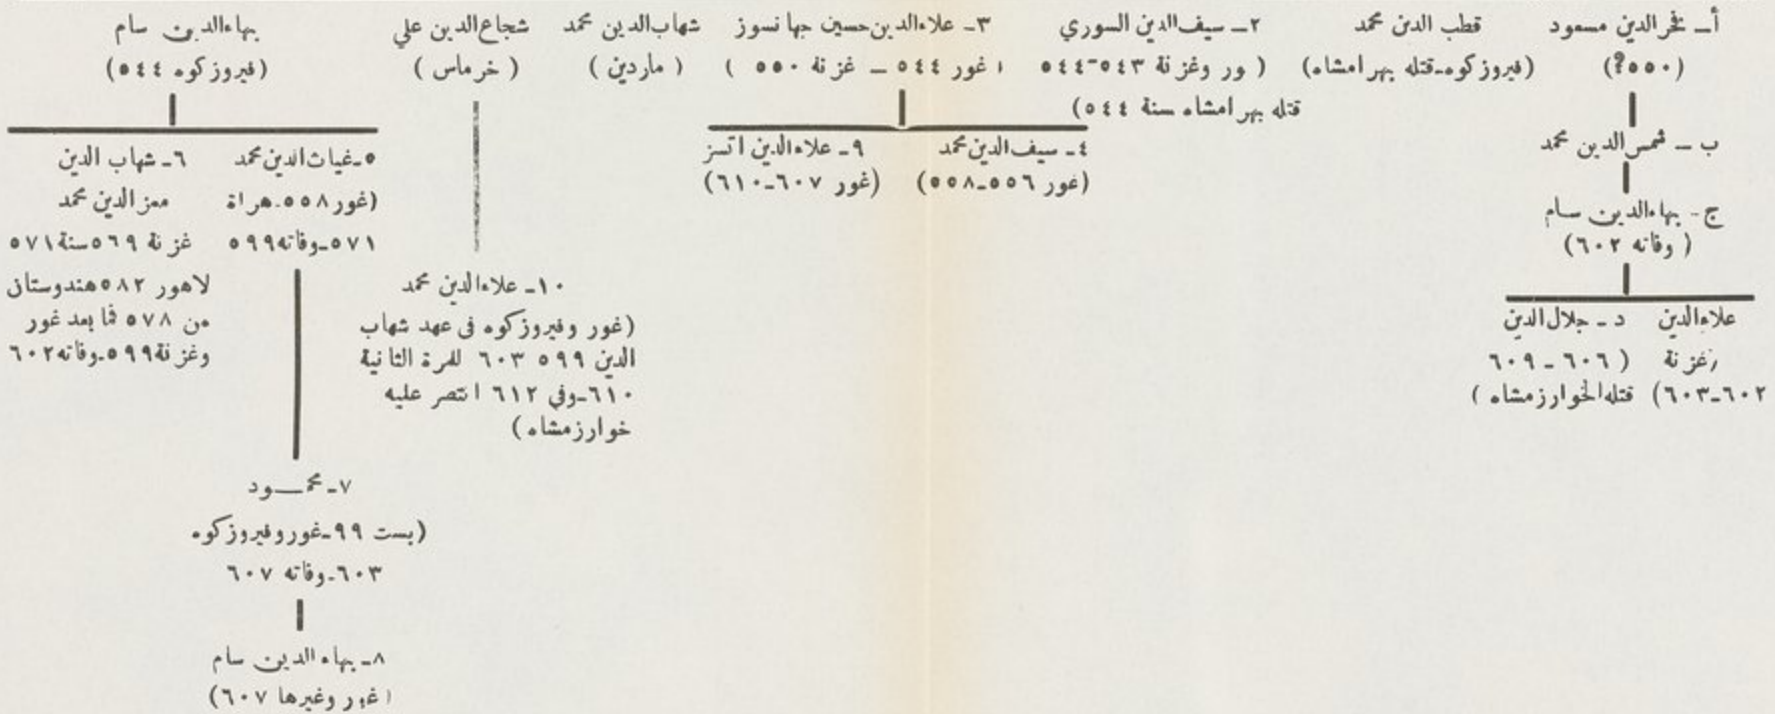 أ ـ فخر الدين مسعود
(٥٥٠؟)
ب ـ شمس الدين محمد
ج ـ بهاء الدين سام
( وفاته ٦٠٢)
علاء الدين
(غزنة
٦٠٢ـ٦٠٣)
د ـ جلال الدين
( ٦٠٦ ـ ٦٠٩
قتله الخوارزمشاه )
قطب الدين محمد
(فيروزكوه ـ قتله بهرامشاه)
٢ ـ سيف الدين السوري
( ور وغزنة ٥٤٣-٥٤٤
قتله بهرامشاه سنة ٥٤٤)
٣ ـ علاء الدين حسين جهانسوز
( غور ٥٤٤ ـ غزنة ٥٥٠ )
٤ ـ سيف الدين محمد
(غور ٥٥٦ـ٥٥٨)
٩ ـ علاء الدين اتسز
(غور ٦٠٧ـ٦١٠)
شهاب الدين محمد
( ماردين )
شجاع الدين علي
( خرماس )
١٠ ـ علاء الدين محمد
(غور وفيروزكوه فى عهد شهاب
الدين ٥٩٩ ٦٠٣ للمرة الثانية
٦١٠ـوفي ٦١٢ انتصر عليه
خوارزمشاه )
بهاء الدين سام
(فيروزكوه ٥٤٤)
٥ ـ غياث الدين محمد
(غور ٥٥٨ـهراة
٥٧١ـوفاته٥٩٩
٦ ـ شهاب الدين
معز الدين محمد
غزنة ٥٦٩ سنة ٥٧١
لاهور ٥٨٢ هندوستان
من ٥٧٨ فما بعد غور
وغزنة ٥٩٩ـوفاته ٦٠٢
٧ ـ محمـــود
(بست ٩٩ـغور وفيروزكوه
٦٠٣ـوفاته ٦٠٧
٨ ـ بهاء الدين سام
(غور وغيرها ٦٠٧)